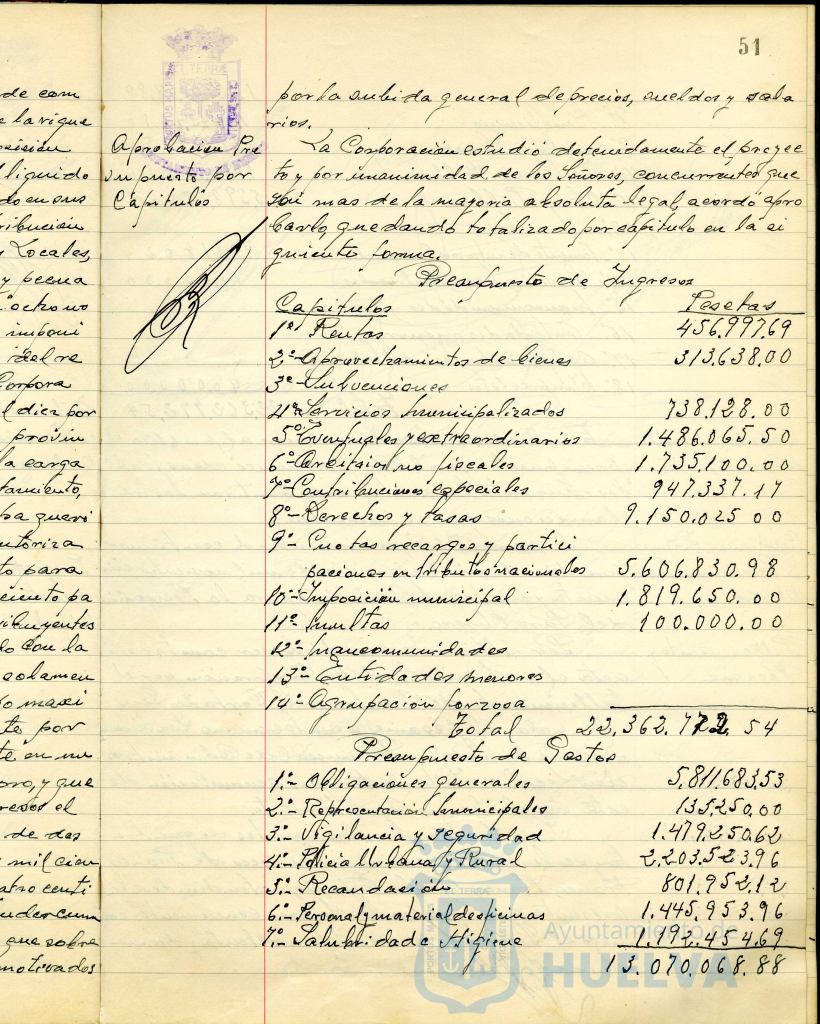 51
de com
e la rigue
posición
l liquido
do en sus
ribución
y Locales,
y pecua
octavo
imponi
Corpora
l diez por
provin
la carga
tamiento,
utoriza
to para
ciento pa
ribuyentes
do con la
solamen
o maxi
te por
oro, y que
resos el
de dos
mil cien
atro centi
que sobre
motivados
Aprobacion Pre
supuesto por
Capitulos
por la subida general de precios, sueldos y sala
rios.
La Corporación estudió detenidamente el proyec
to y por unanimidad de los Señores, concurrentes que
son mas de la mayoria absoluta legal, acordó apro
barlo quedando totalizado por capitulo en la si
guiente forma.
Presupuesto de Ingresos
Capitulos Pesetas
1º Rentas 456.997.69
2º- Aprovechamientos de bienes 313.638.00
3º- Subvenciones
4º- Servicios municipalizados 738.128.00
5º Eventuales y extraordinarios 1.486.065.50
6º- Arbitrios no fiscales 1.735.100.00
7º- Contribuciones especiales 947.337.17
8º- Derechos y tasas 9.150.025 00
9º- Cuotas recargos y partici
paciones en tributos nacionales 5.606.830.98
10º- Imposición municipal 1.819.650.00
11º- Multas 100.000.00
12º- Mancomunidades
13º- Entidades menores
14º- Agrupación forzosa
Total 22,362.772 54
Presupuesto de Gastos
1.º- Obligaciones generales 5.811.683.53
2.º- Representación municipales 135.250.00
3.º- Vigilancia y seguridad 1.479.250.62
4.º- Policia Urbana y Rural 2.203.523.96
5.º- Recaudación 801.952.12
6.º- Personal y material de oficinas 1.445.953.96
7.º- Salubridad e Higiene 1.192.454.69
13.070.068.88
Ayuntamiento de
HUELVA